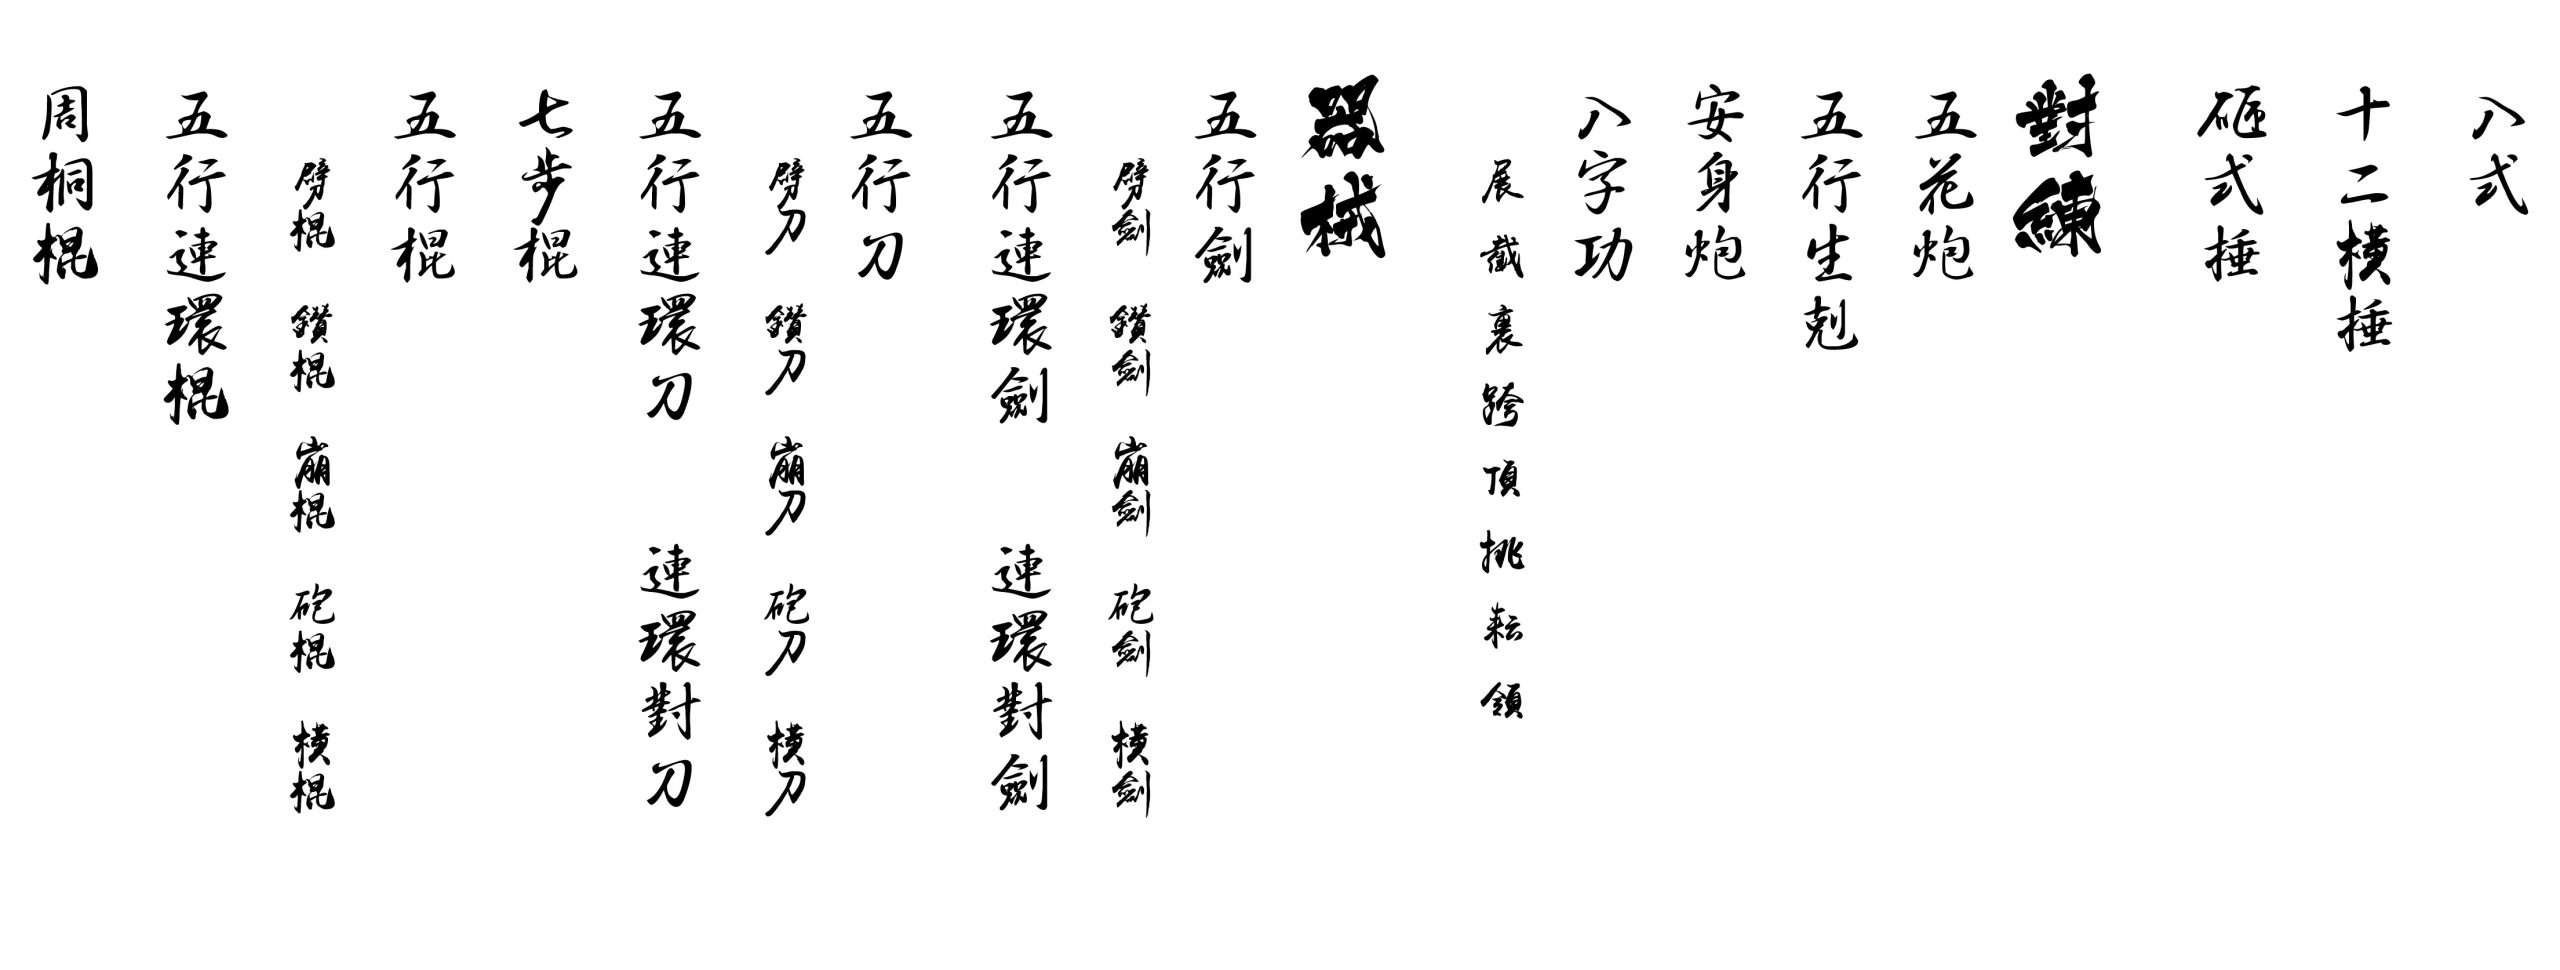 八式
十二橫捶
砸式捶
對練
五花炮
五行生剋
安身炮
八字功
展 截 裹 跨 頂 挑 耘 領
器械
五行劍
劈劍 鑽劍 崩劍 砲劍 橫劍
五行連環劍 連環對劍
五行刀
劈刀 鑽刀 崩刀 砲刀 橫刀
五行連環刀 連環對刀
七步棍
五行棍
劈棍 鑽棍 崩棍 砲棍 橫棍
五行連環棍
周桐棍